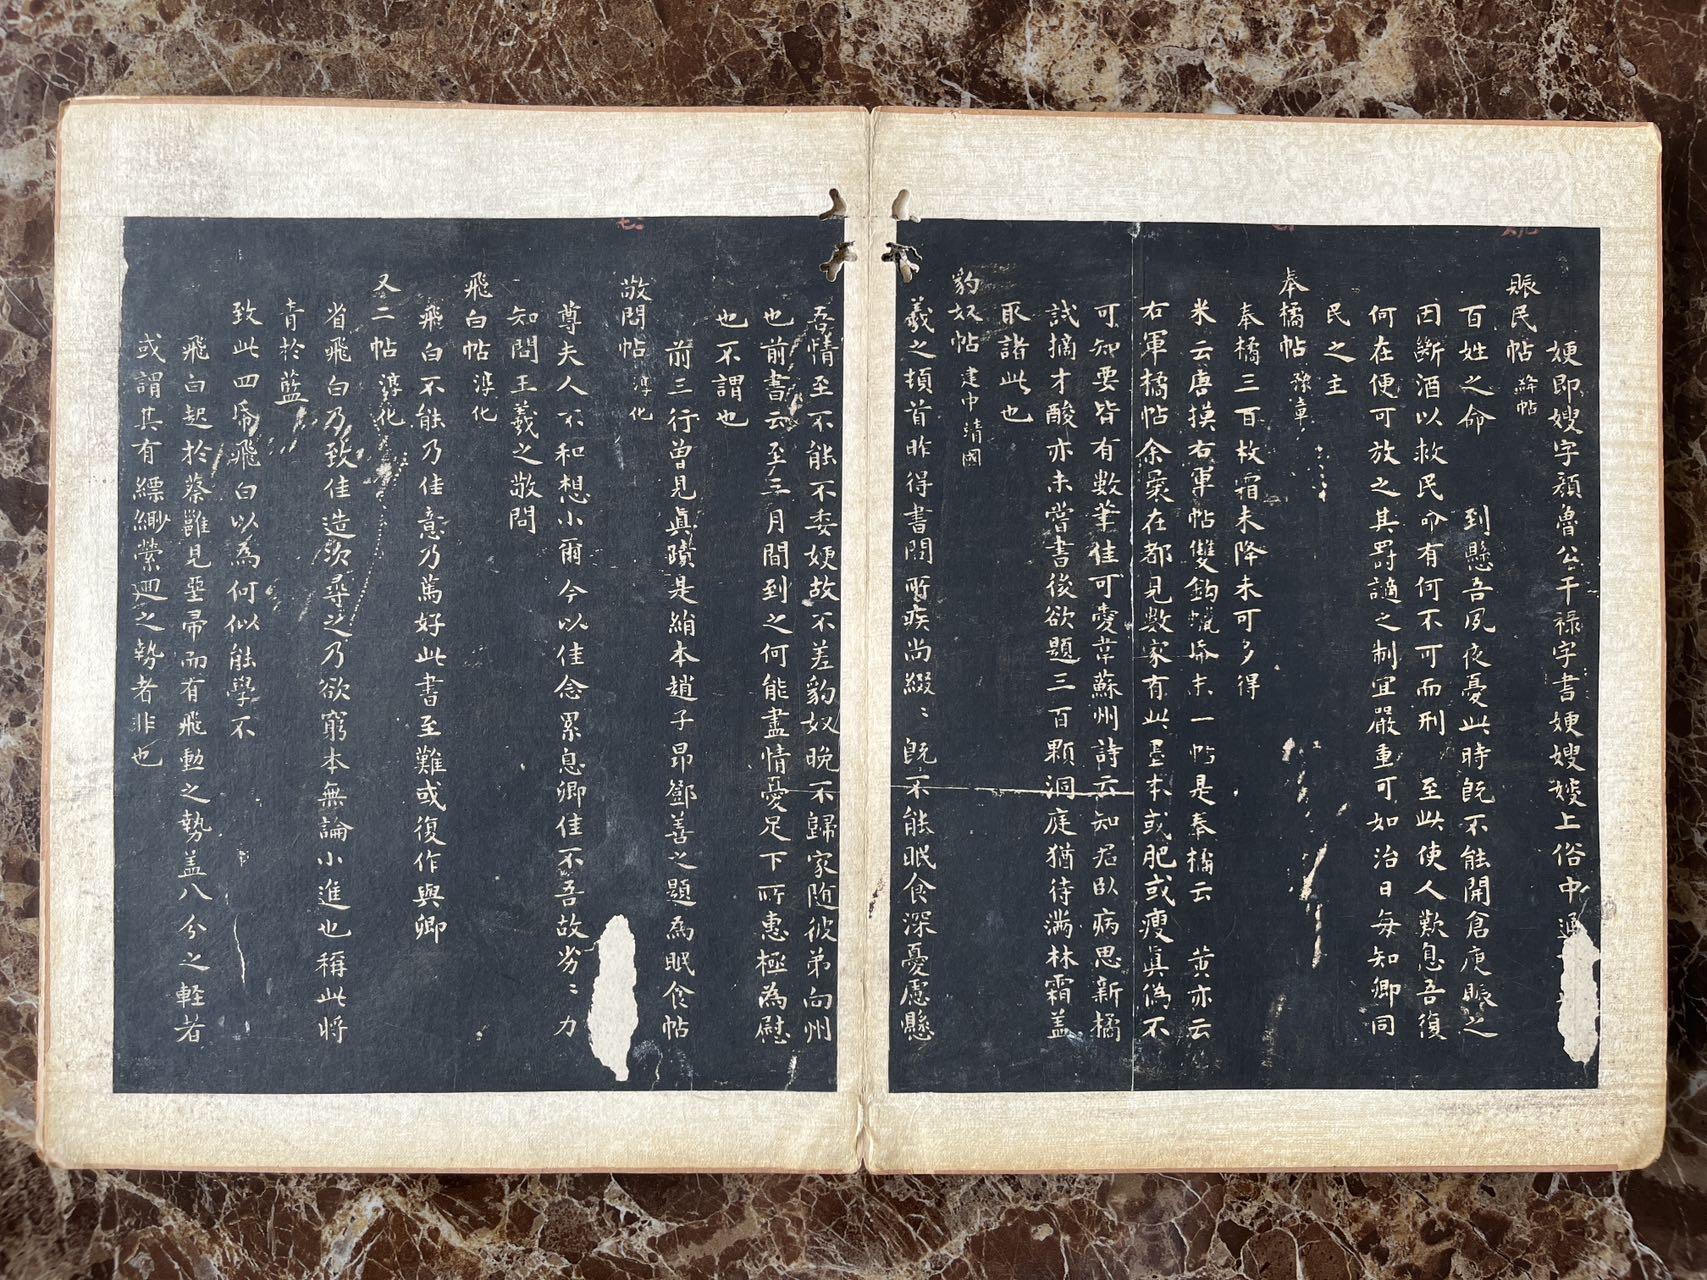 㛐即嫂字顏魯公干祿字書㛐嫂㛮上俗中通
賑民帖 絳帖
百姓之命 到懸吾夙夜憂此時既不能開倉庾賑之
因斷酒以救民命有何不可而刑 至此使人歎息吾復
何在便可放之其罸謫之制宜嚴重可如治日每知卿同
民之主
奉橘帖 豫章
奉橘三百枚霜未降未可多得
米云唐摸右軍帖雙鉤蠟帋末一帖是奉橘云 黃亦云
右軍橘帖余㝡在都見數家有此墨本或肥或瘦真偽不
可知要皆有數筆佳可愛韋蘇州詩云知君臥病思新橘
試摘才酸亦未嘗書後欲題三百顆洞庭猶待滿林霜盖
取諸此也
豹奴帖 建中靖國
羲之頓首昨得書問所疾尚綴〻既不能眠食深憂慮懸
吾情至不能不委㛐故不差豹奴晚不歸家隨彼弟向州
也前書云至三月間到之何能盡情憂足下所惠極為慰
也不謂也
前三行曾見真蹟是絹本趙子昂鄧善之題為眠食帖
敬問帖 淳化
尊夫人不和想小爾今以佳念累息卿佳不吾故劣〻力
知問王羲之敬問
飛白帖 淳化
飛白不能乃佳意乃篤好此書至難或復作與卿
又二帖 淳化
省飛白乃致佳造次尋之乃欲窮本無論小進也稱此將
青於藍
致此四帋飛白以為何似能學不
飛白起於蔡雝見堊帚而有飛動之勢盖八分之軽者
或謂其有縹緲縈迴之勢者非也